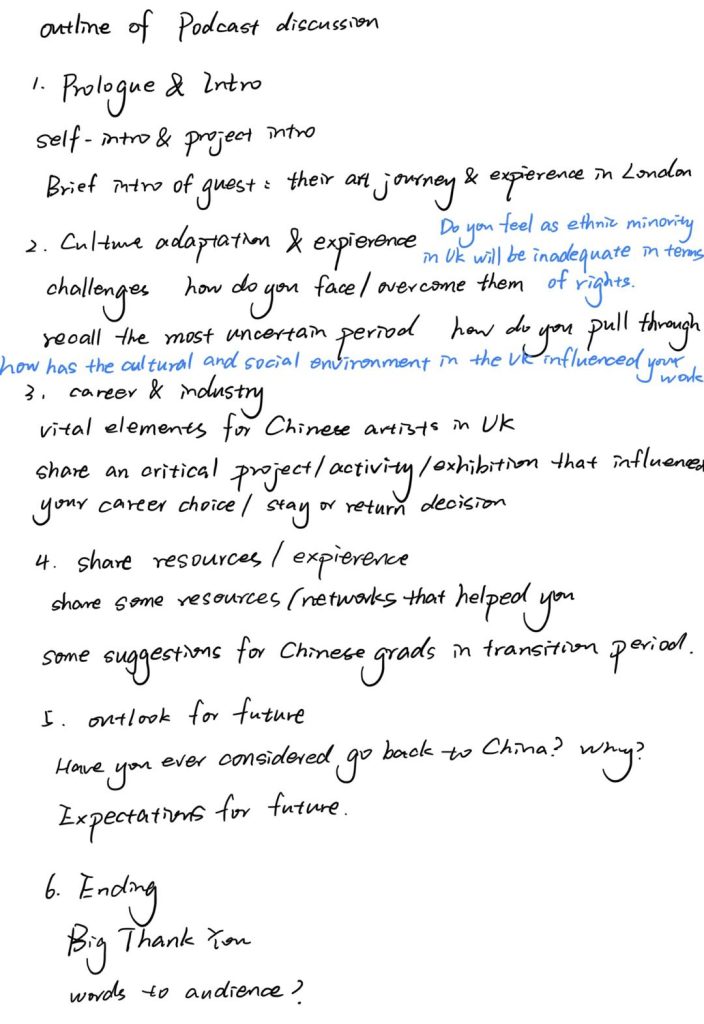 outline of Podcast discussion
1. Prologue & Intro
self-intro & project intro
Brief intro of guest: their art journey & expierence in London
2. Culture adaptation & expierence
Do you feel as ethnic minority
in UK will be inadequate in terms
of rights.
challenges how do you face/overcome them
recall the most uncertain period how do you pull through
how has the cultural and social environment in the UK influenced your
work
3. career & industry
vital elements for Chinese artists in UK
share an critical project/activity/exhibition that influenced
your career choice/ stay or return decision
4. share resources/expierence
share some resources/networks that helped you
some suggestions for Chinese grads in transition period.
5. outlook for future
Have you ever considered go back to China? Why?
Expectations for future.
6. Ending
Big Thank You
words to audience?